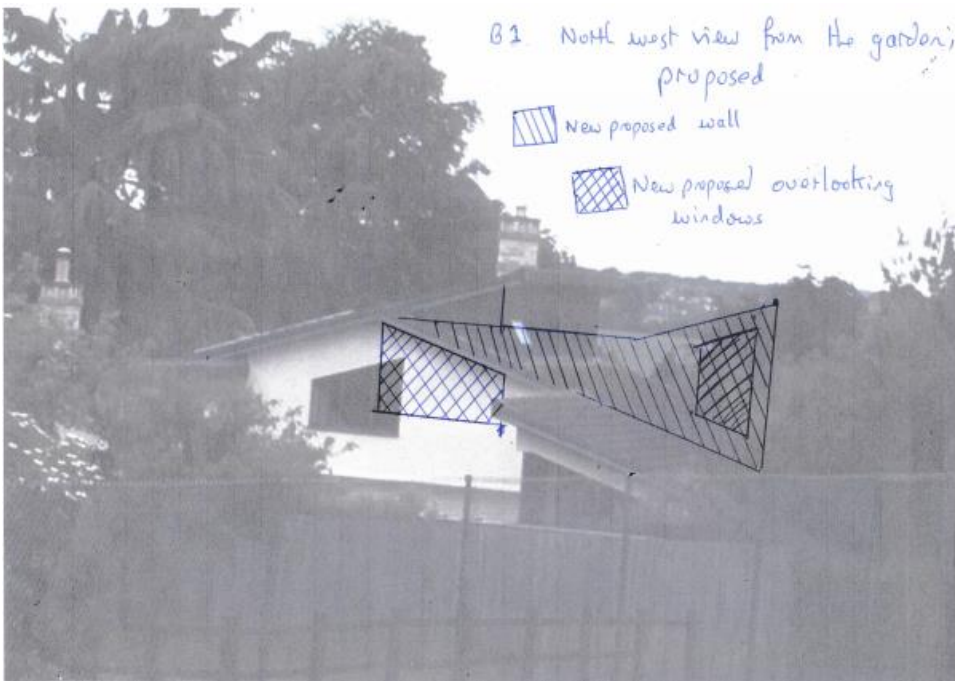 B1 North west view from the garden,
proposed
New proposed wall
New proposed overlooking
windows